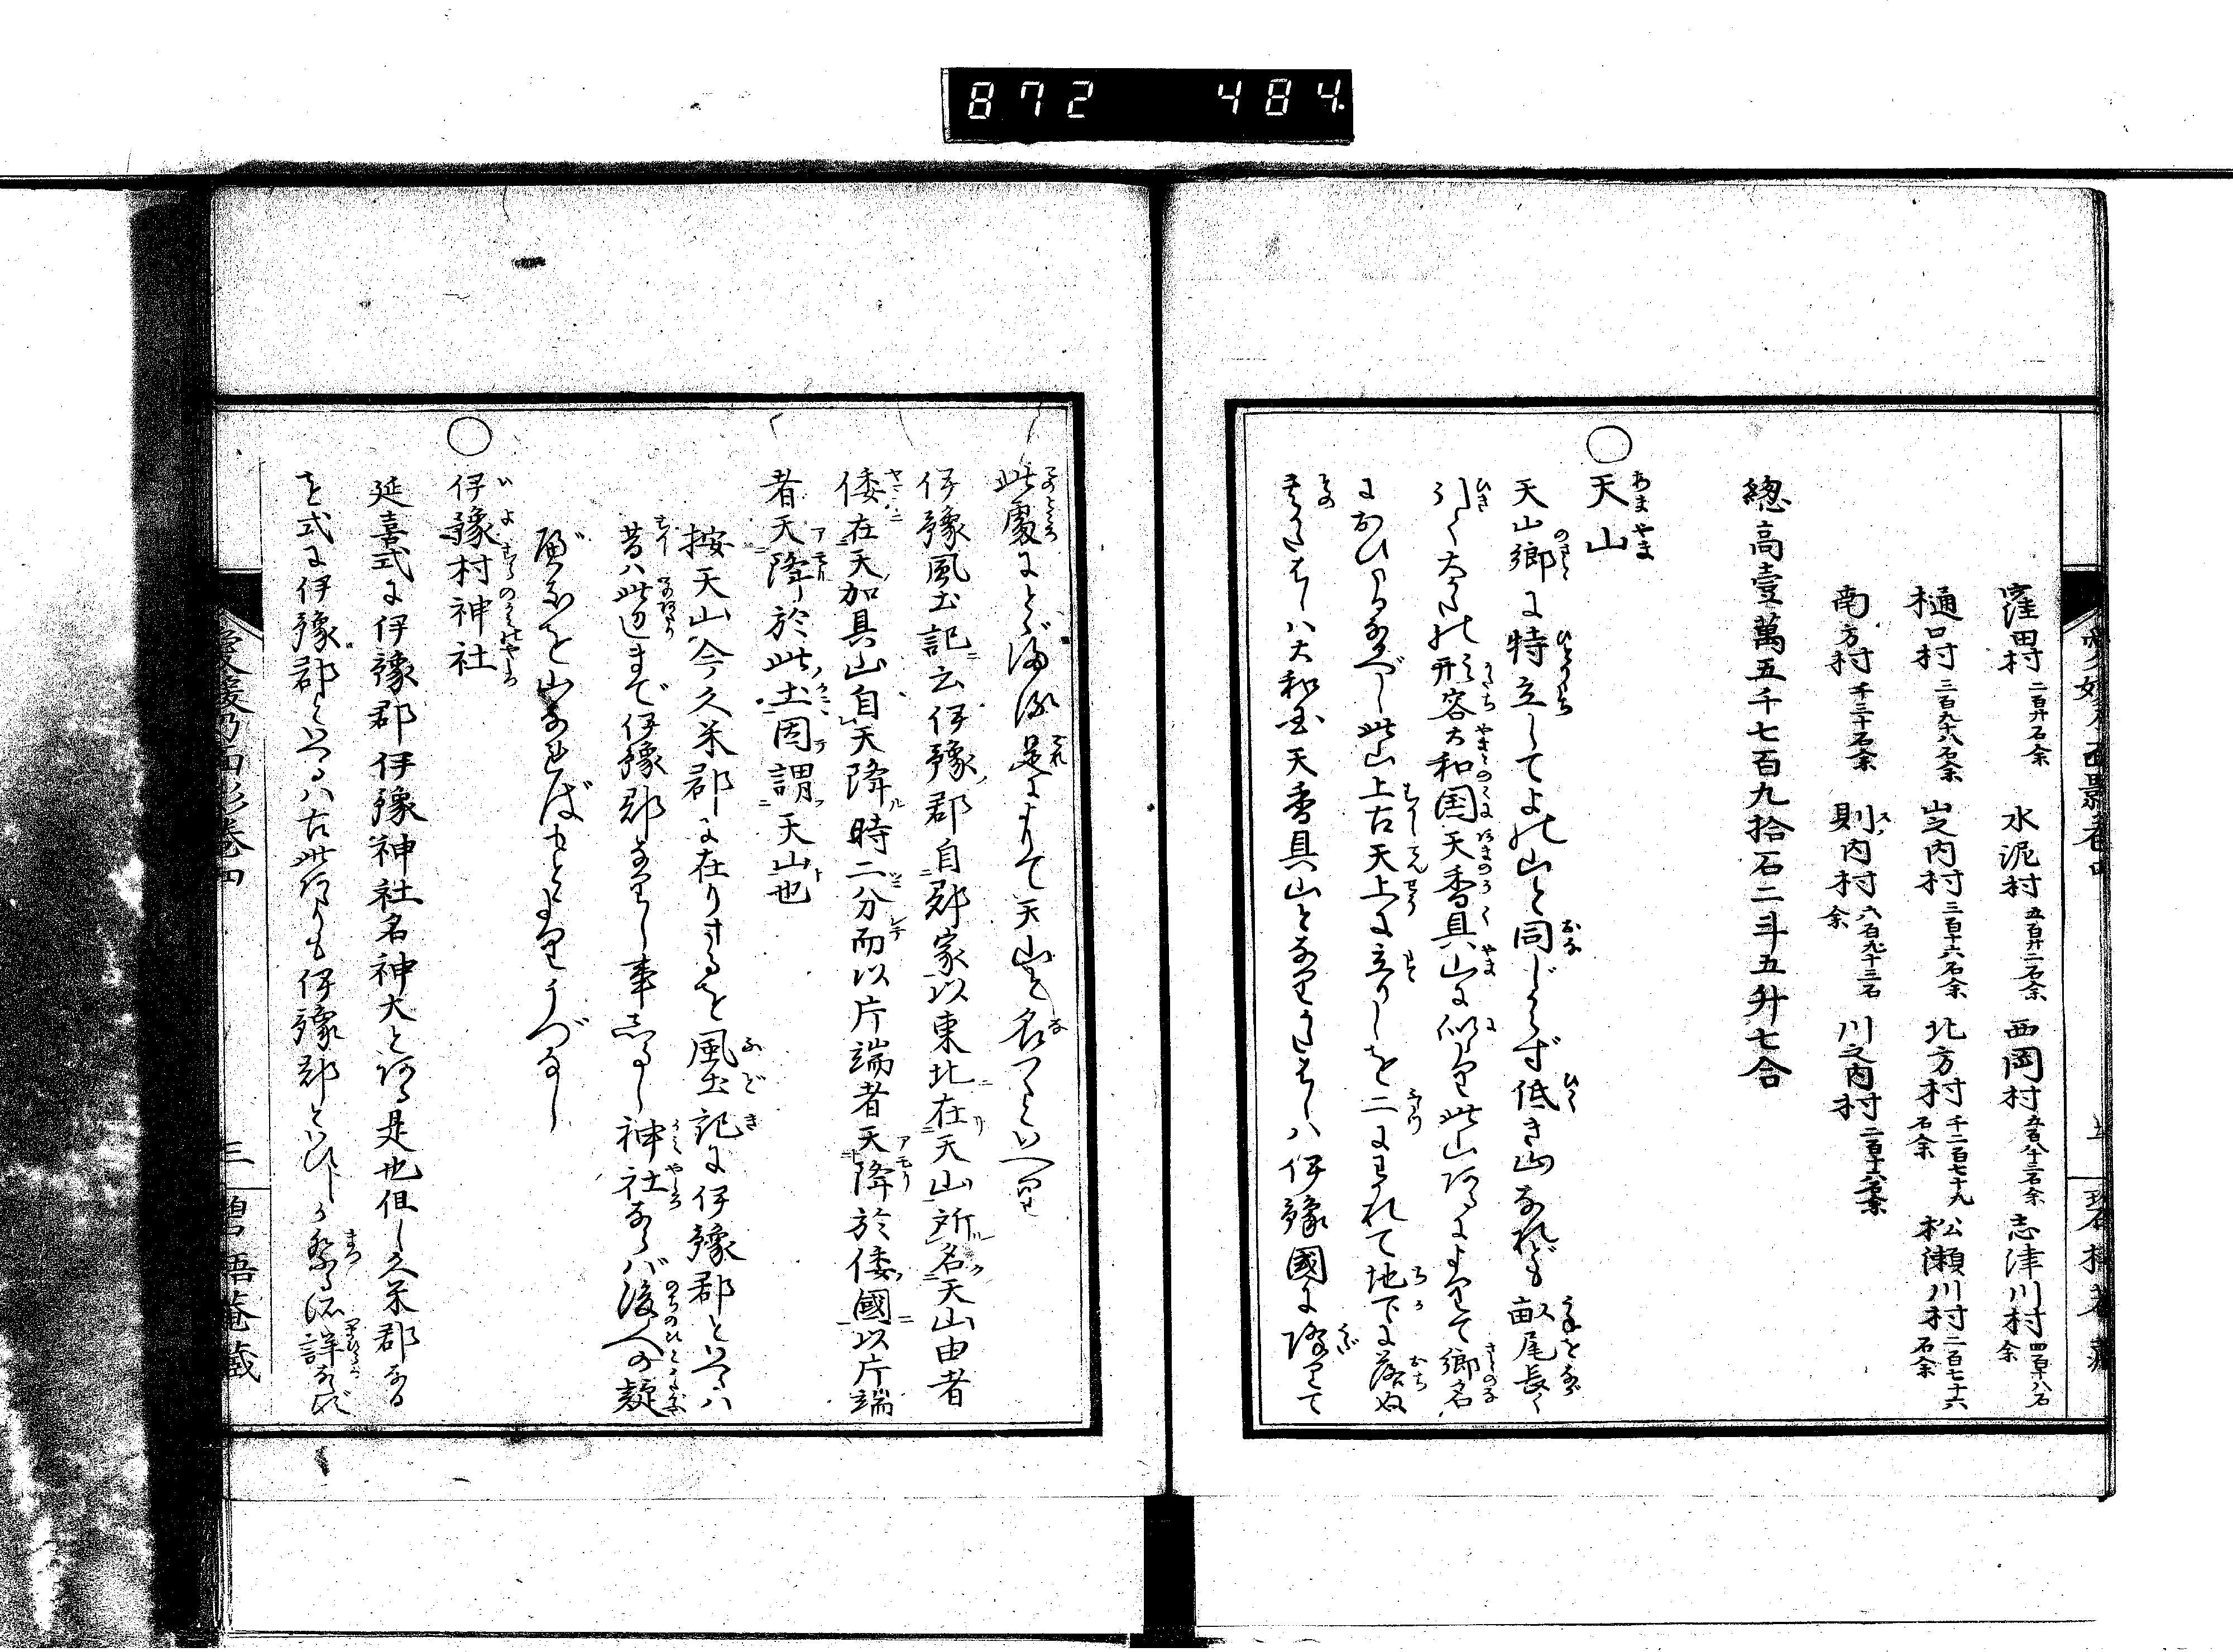 872 484
窪田村 二百廾石余 水泥村 五百廾二石余 西岡村 志津川村 四百十八石余
樋口村 三百九十八石余 志之内村 三百十六石余 北方村 千二百七十九石余 松瀬川村 二百七十六石余
南方村 千三十石余 則之内村 六百九十三石余 川之内村
総高壹萬五千七百九拾石二斗五升七合
○天山
天山郷に特立してよの山と同じからず低き山なれども畝尾長く
引く大かたの形容大和国天香具山に似たり此山あるによりて郷名
におひたるなるべし此山上古天上に立りしを二にわれて地下に落ぬ
そのかたはしハ大和国天香具山となりかたはしハ伊豫國に降りて
此處にとゞまる是によりて天山と名つくといへり
伊豫風土記云伊豫郡自郡家以東北在天山所名天山由者
倭在天加具山自天降時二分而以片端者天降於倭國以片端
者天降於此土因謂天山也
按天山今久米郡に在りけるを風土記に伊豫郡といへるハ
昔ハ此辺まで伊豫郡なりし事しるし神社ならバ後人の疑
もあるべきを山なればもとよりうづなし
○伊豫村神社
延喜式に伊豫郡伊豫神社名神大とある是也但し久米郡なる
を式に伊豫郡といへるハ古此あたりも伊豫郡といひしか
愛媛乃面影巻四 三 碧梧菴蔵